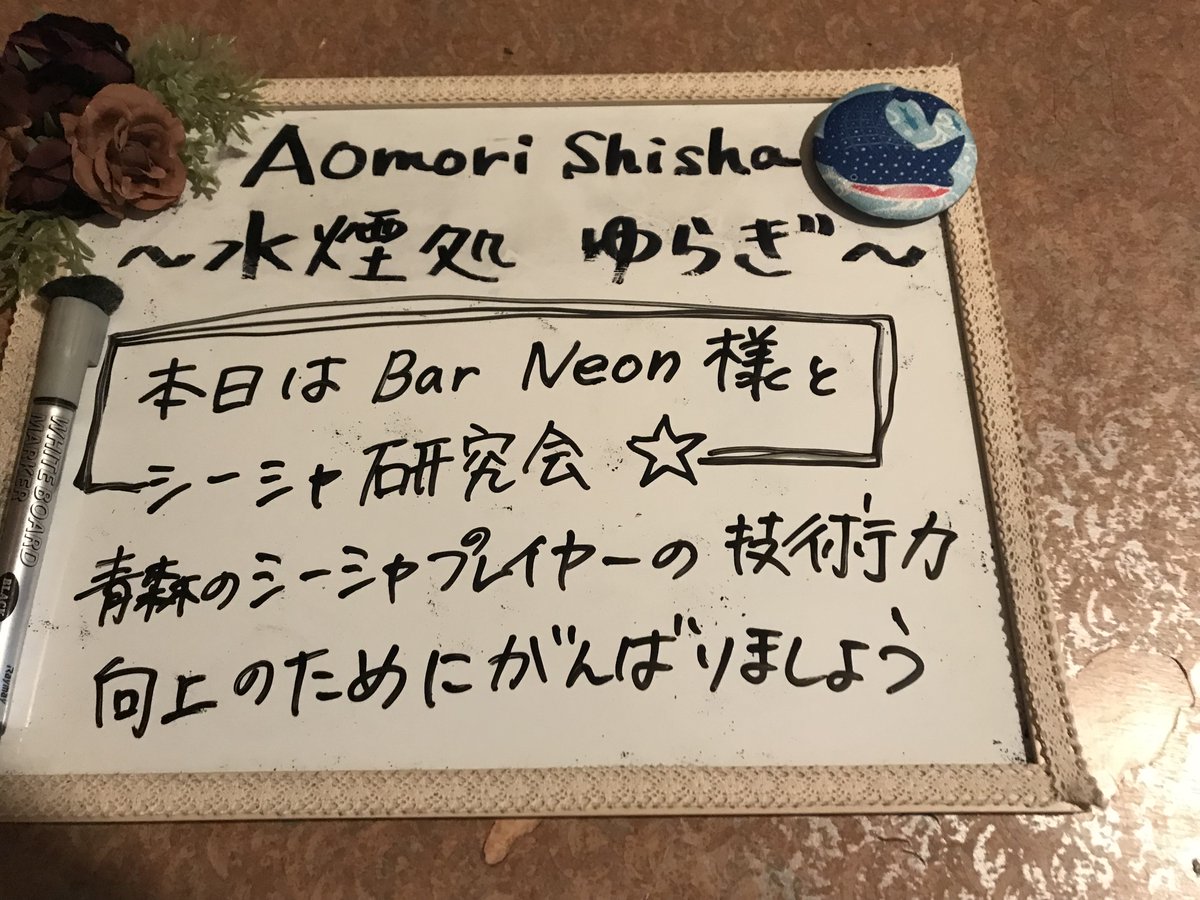 Aomori Shisha
～水煙処 ゆらぎ～
本日は Bar Neon 様と
シーシャ研究会 ☆
青森のシーシャプレイヤーの技術力
向上のためにがんばりましょう
WHITE BOARD
MARKER
BLACK
Raymay